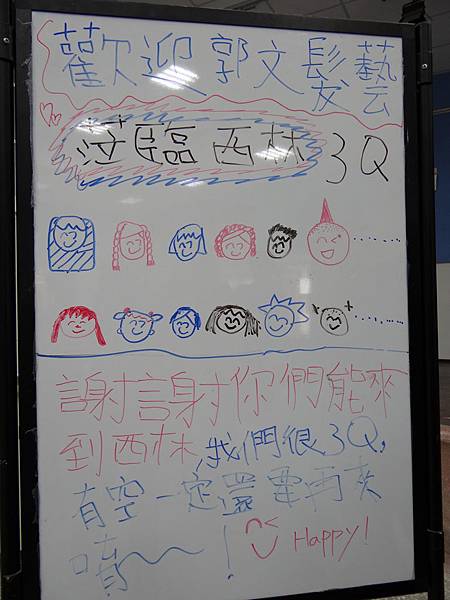 歡迎郭文髮藝
蒞臨西林 3Q
謝謝你們能來
到西林,我們很3Q,
有空一定還要再來
唷~~!Happy!